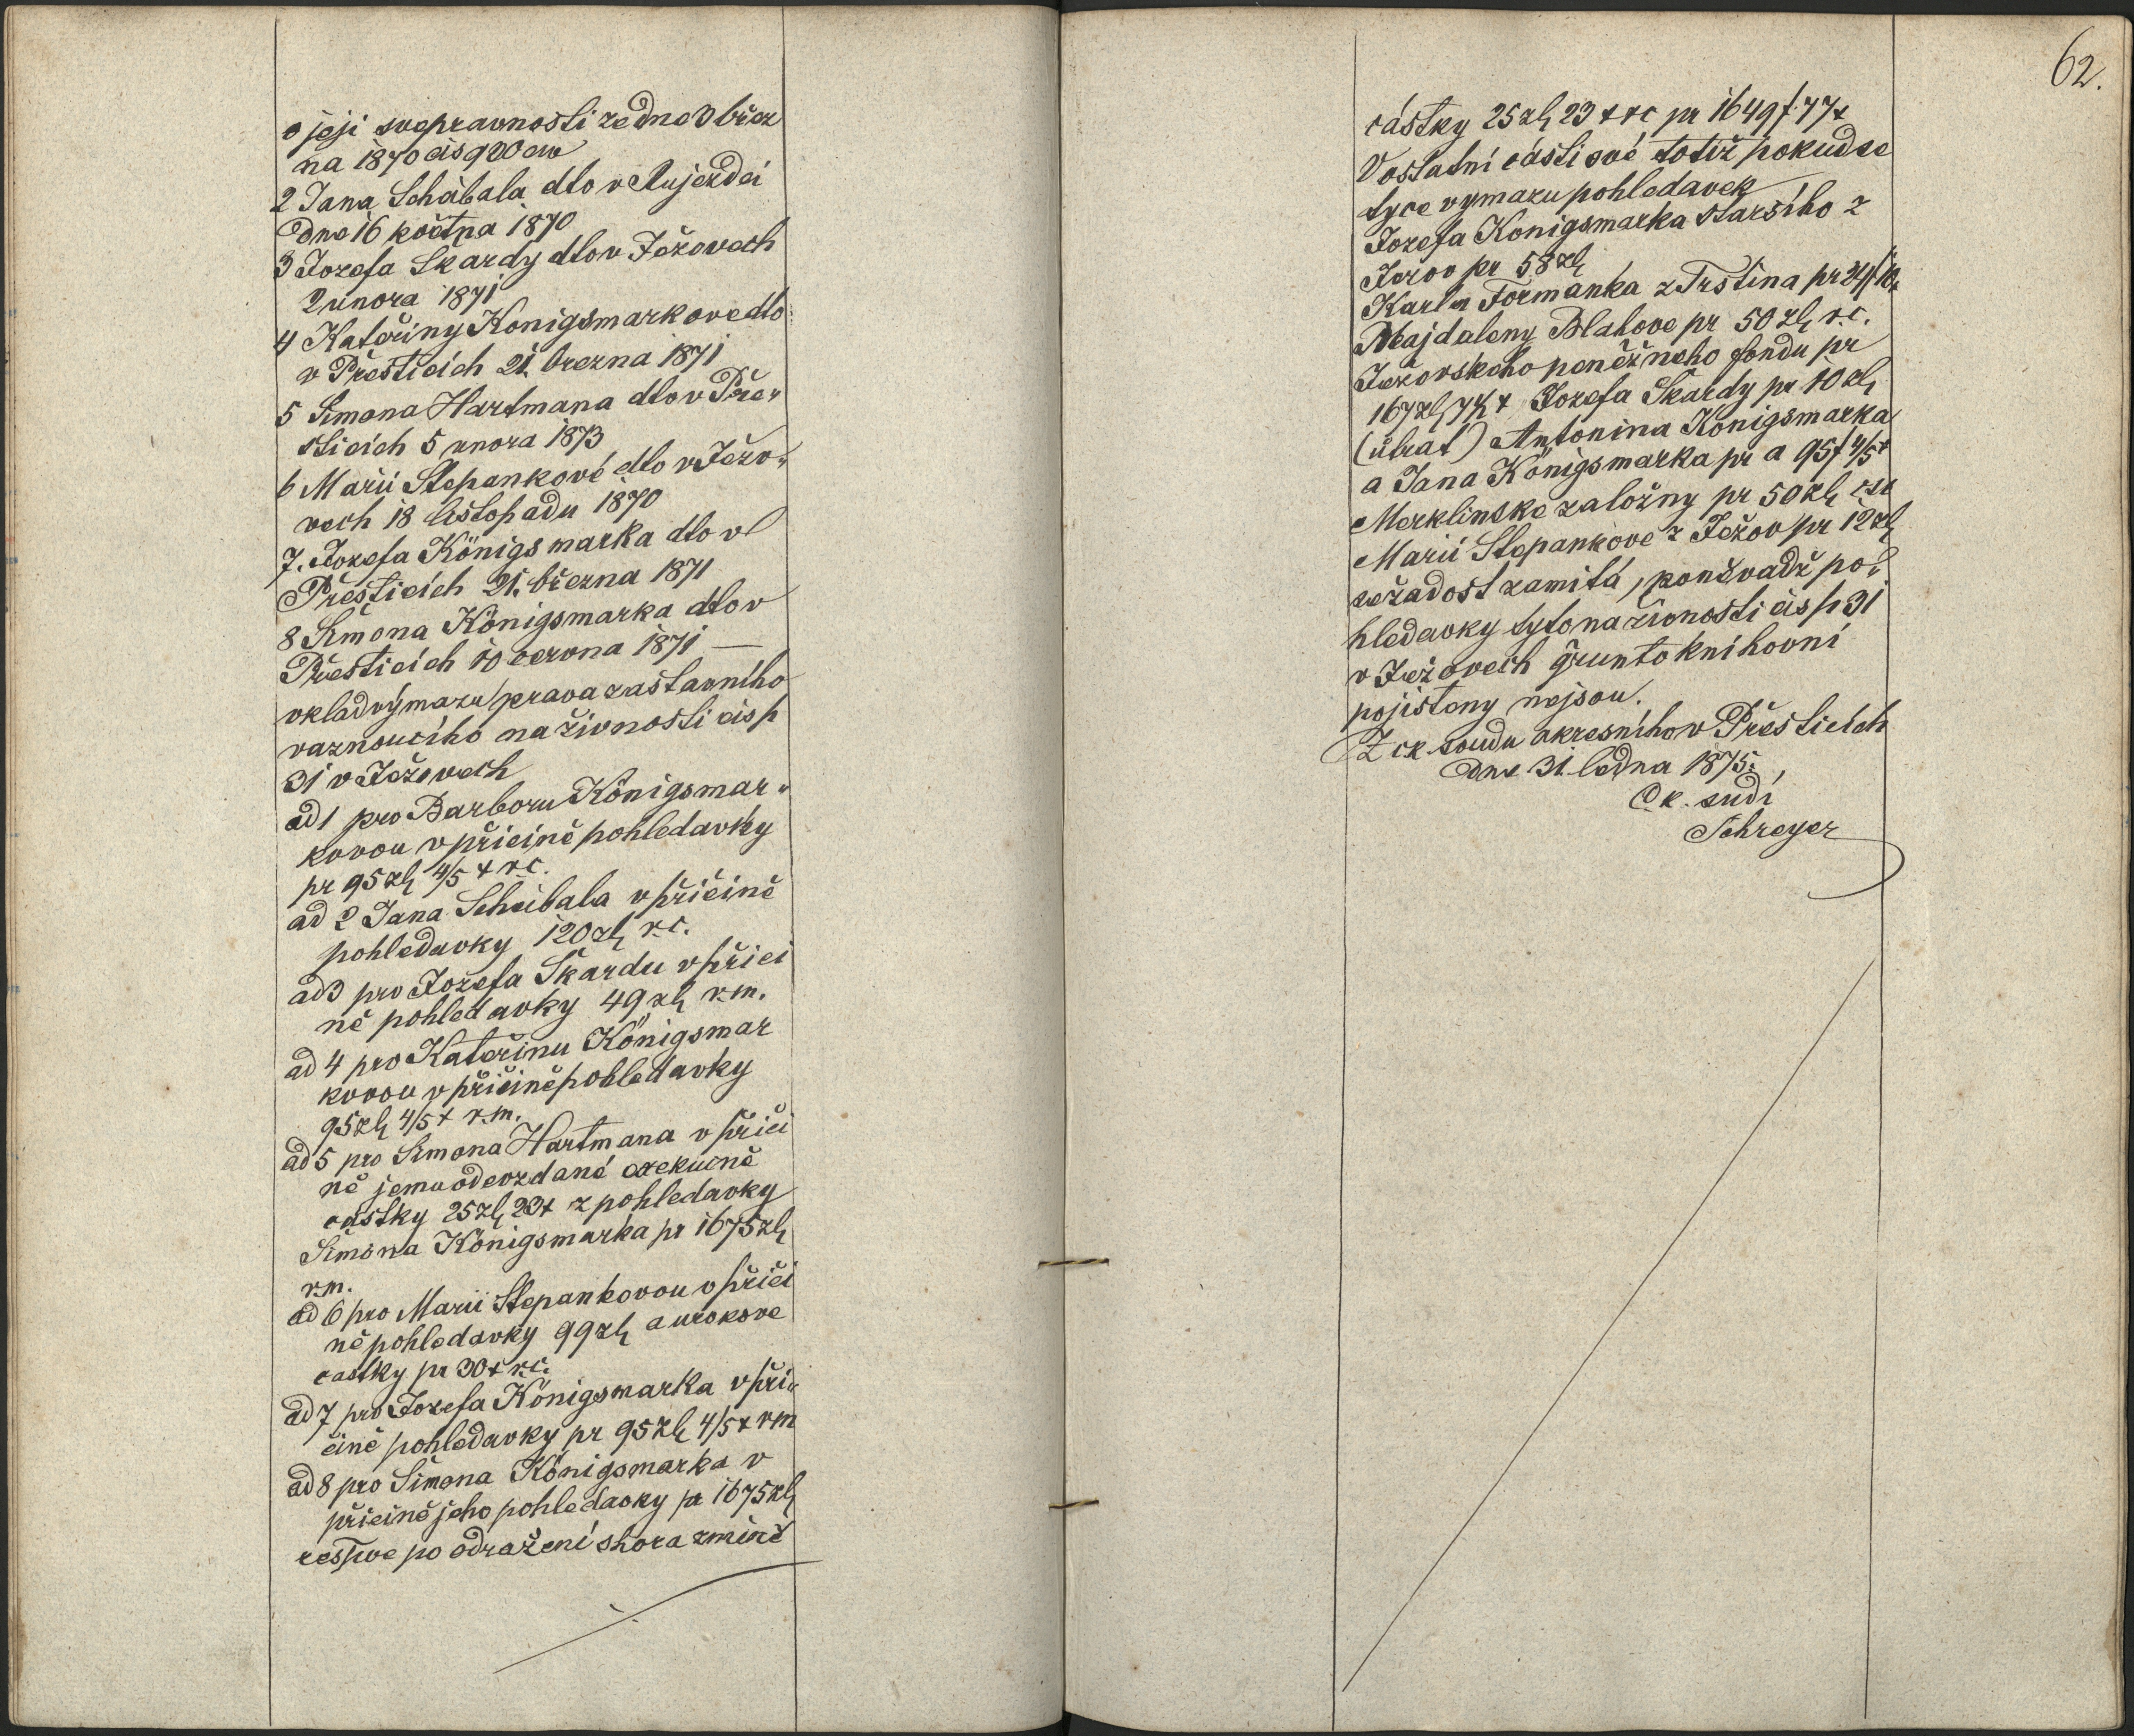 o jeji svepravnosti ze dne 3 břez
na 1870 čis 920 civ
2 Jana Schábala dto v Aujezdci
dne 16 května 1870
3 Jozefa Skardy dto v Ježovech
2 unora 1871
4 Kateřiny Konigsmarkove dto
v Přesticích 21. brezna 1871
5 Simona Hartmana dto v Pře„
sticích 5 unora 1873
6 Marii Stepankové dto v Ježo„
vech 18 listopadu 1870
7. Jozefa Königsmarka dto v
Přesticích 21. března 1871
8 Šimona Königsmarka dto v
Přesticích 10 cervna 1871 —
vklad výmazu prava zastavního
vaznoucího na živnosti čis p
31 v Ježovech
ad 1 pro Barboru Königsmar„
kovou v přičině pohledavky
pr 95 zl 4/5 x r.c.
ad 2 Jana Schábala v přičině
pohledavky 120 zl r.c.
ad 3 pro Jozefa Škardu v přiči
ně pohledavky 49 zl r.m.
ad 4 pro Kateřinu Königsmar
kovou v přičině pohledavky
95 zl 4/5 x r.m.
ad 5 pro Simona Hartmana v přiči
ně jemu odevzdané exekučně
častky 25 zl 23 x z pohledavky
Šimona Königsmarka pr 1675 zl
r.m.
ad 6 pro Marii Stepankovou v přiči
ně pohledavky 99 zl a urokove
častky pr 30 x r.c.
ad 7 pro Jozefa Königsmarka v při„
čině pohledavky pr 95 zl 4/5 x r m
ad 8 pro Šimona Königsmarka v
přičině jeho pohledavky pr 1675 zl
respve po odražení shora zmíně
62.
částky 25 zl 23 x r c pr 1649 f 77 x
V ostatní části své totiž pokud se
tyce vymazu pohledavek
Jozefa Konigsmarka staršího z
Ježov pr 58 zl
Karla Formanka z Trstina pr
Majdaleny Blahove pr 50 zl r.c.
Ježovskeho peněžneho fondu pr
167 zl x Jozefa Škardy pr 10 zl
(útrat) Antonina Königsmarka
a Jana Königsmarka pr a 95 f 4/5 x
Merklinske založny pr 50 zl
Marii Stepankove z Ježov pr 12 zl
se žadost zamítá, poněvadž po„
hledavky tyto na živnosti čis p 31
v Ježovech gruntoknihovní
pojisteny nejsou.
Z ck. soudu okresního v Přesticích
dne 31. ledna 1875.
C. k. sudí
Schreyer